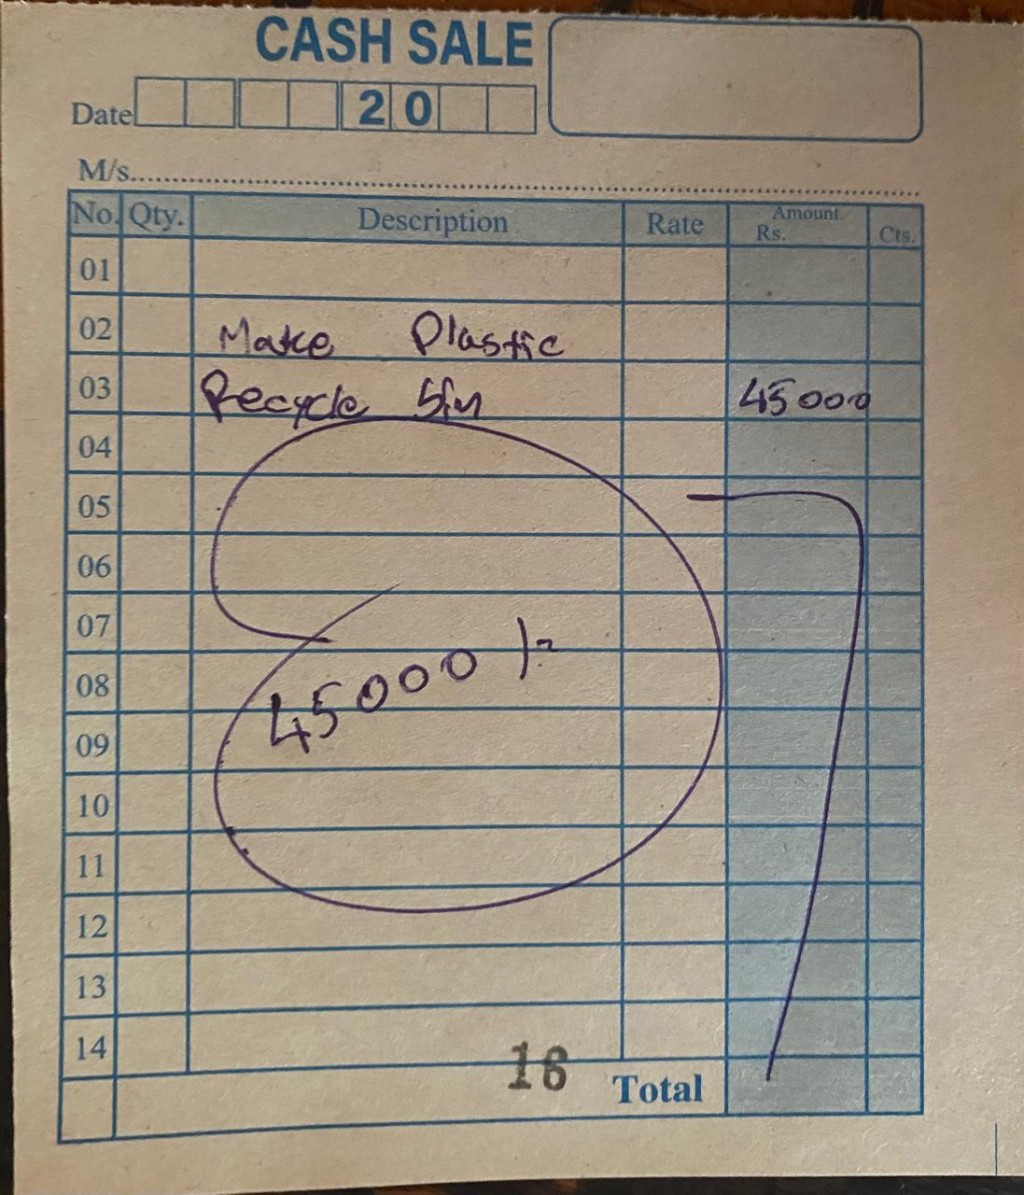 CASH SALE
Date 20
M/s
No. Qty. Description Rate Amount Rs. Cts.
01
02 Make Plastic
03 Recycle bin 45000
04
05
06
07
08 45000/=
09
10
11
12
13
14
16 Total